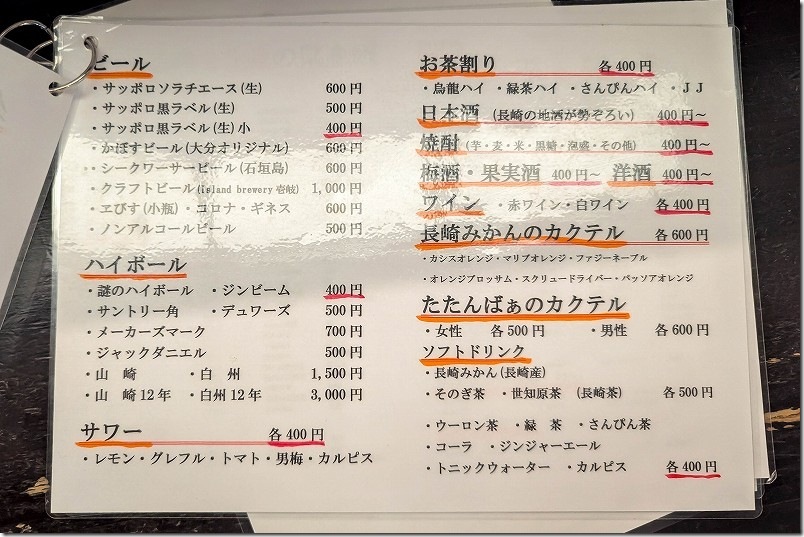 ビール
・サッポロソラチエース(生) 600円
・サッポロ黒ラベル(生) 500円
・サッポロ黒ラベル(生)小 400円
・かぼすビール(大分オリジナル) 600円
・シークワーサービール(石垣島) 600円
・クラフトビール(island brewery 壱岐) 1,000円
・ヱびす(小瓶)・コロナ・ギネス 600円
・ノンアルコールビール 500円
ハイボール
・謎のハイボール ・ジンビーム 400円
・サントリー角 ・デュワーズ 500円
・メーカーズマーク 700円
・ジャックダニエル 500円
・山 崎 ・白 州 1,500円
・山 崎12年 ・白州12年 3,000円
サワー 各400円
・レモン・グレフル・トマト・男梅・カルピス
お茶割り 各400円
・烏龍ハイ ・緑茶ハイ ・さんぴんハイ ・JJ
日本酒 (長崎の地酒が勢ぞろい) 400円~
焼酎(芋・麦・米・黒糖・泡盛・その他) 400円~
梅酒・果実酒 400円~ 洋酒 400円~
ワイン ・赤ワイン・白ワイン 各400円
長崎みかんのカクテル 各600円
・カシスオレンジ・マリブオレンジ・ファジーネーブル
・オレンジブロッサム・スクリュードライバー・パッソアオレンジ
たたんばぁのカクテル
・女性 各500円 ・男性 各600円
ソフトドリンク
・長崎みかん(長崎産)
・そのぎ茶 ・世知原茶 (長崎茶) 各500円
・ウーロン茶 ・緑 茶 ・さんぴん茶
・コーラ ・ジンジャーエール
・トニックウォーター ・カルピス 各400円